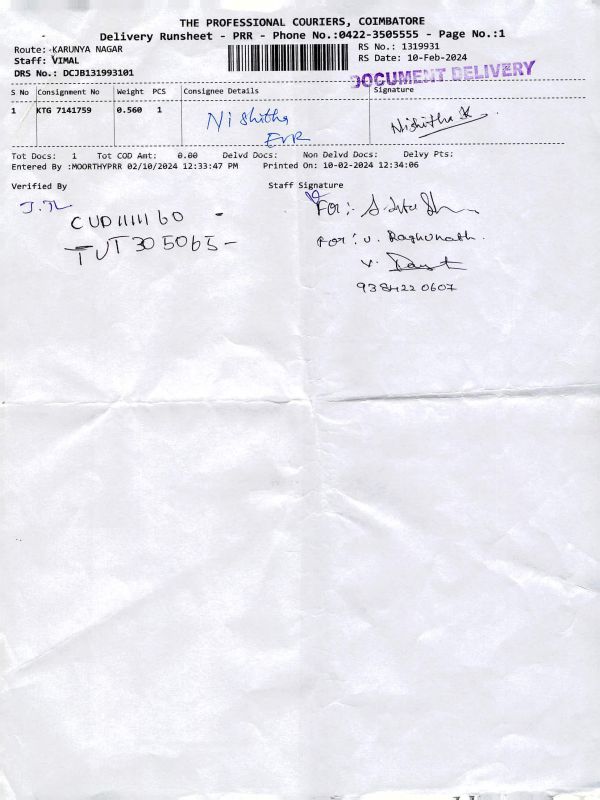 THE PROFESSIONAL COURIERS, COIMBATORE
Delivery Runsheet - PRR - Phone No.:0422-3505555 - Page No.:1
Route: KARUNYA NAGAR
RS No.: 1319931
Staff: VIMAL
RS Date: 10-Feb-2024
DRS No.: DCJB131993101
DOCUMENT DELIVERY
S No Consignment No Weight PCS Consignee Details Signature
1 KTG 7141759 0.560 1 Nishitha Nishitha K
EVR
Tot Docs: 1 Tot COD Amt: 0.00 Delvd Docs: Non Delvd Docs: Delvy Pts:
Entered By :MOORTHYPRR 02/10/2024 12:33:47 PM Printed On: 10-02-2024 12:34:06
Verified By Staff Signature
For:-
CUD1111160 -
TUT305065-
For: V. Raghunath.
V.
9384220607